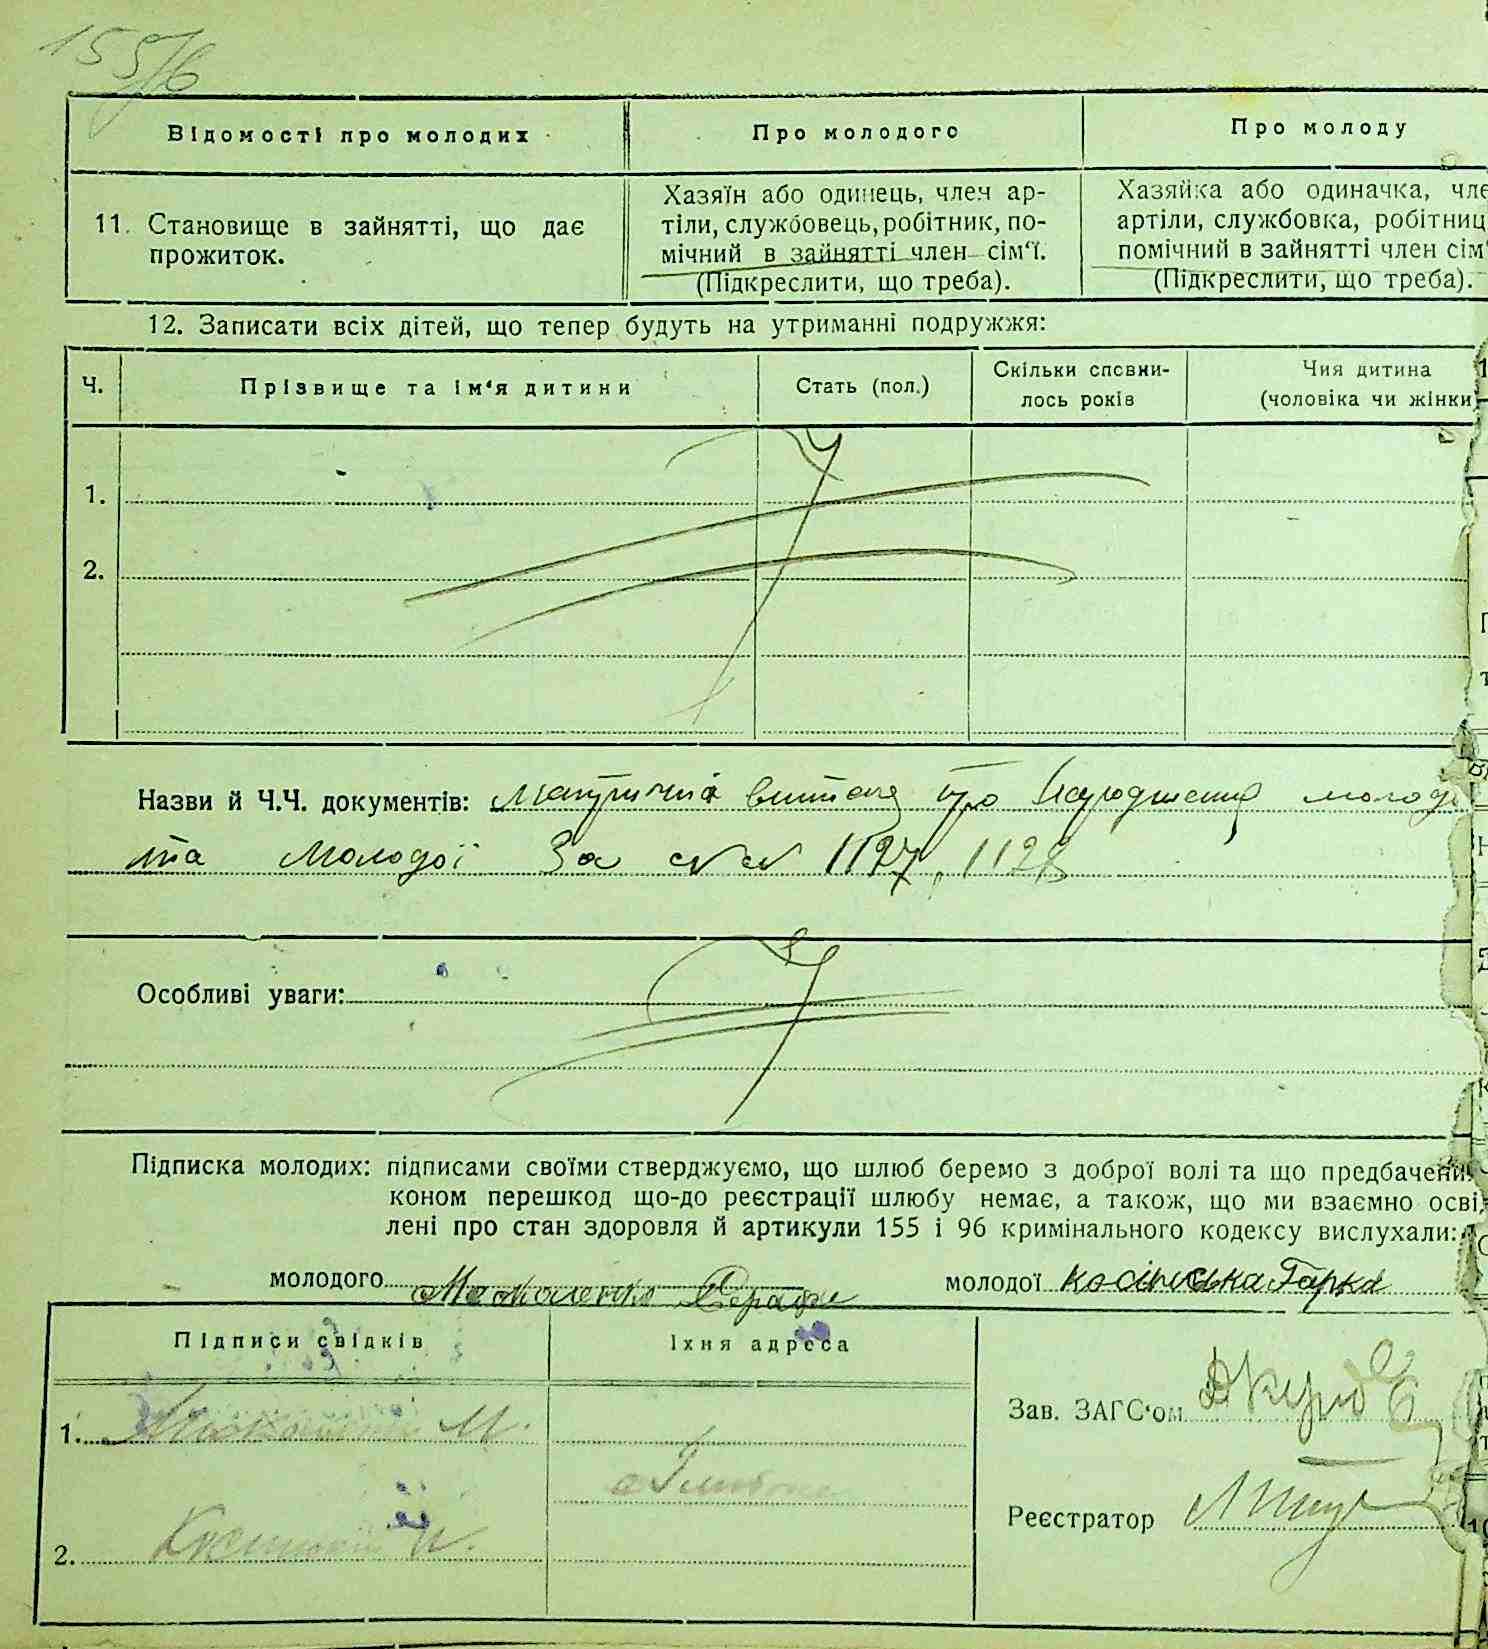 155/6
Відомості про молодих
Про молодого
Про молоду
11. Становище в зайнятті, що дає прожиток.
Хазяїн або одинець, член ар-
тіли, службовець, робітник, по-
мічний в зайнятті член сім'ї.
(Підкреслити, що треба).
Хазяйка або одиначка, чле
артіли, службовка, робітниц
помічний в зайнятті член сім'
(Підкреслити, що треба).
12. Записати всіх дітей, що тепер будуть на утриманні подружжя:
Ч.
Прізвище та ім'я дитини
Стать (пол.)
Скільки сповни-
лось років
Чия дитина
(чоловіка чи жінки)
1.
2.
Назви й Ч.Ч. документів: Метричні витяги про народження молод
та молодої за 1127, 1128
Особливі уваги:
Підписка молодих: підписами своїми стверджуємо, що шлюб беремо з доброї волі та що предбачени
коном перешкод що-до реєстрації шлюбу немає, а також, що ми взаємно осві
лені про стан здоровля й артикули 155 і 96 кримінального кодексу вислухали:
молодого
молодої Косінська Гарка
Підписи свідків
Їхня адреса
1.
2.
Зав. ЗАГС'ом
Реєстратор